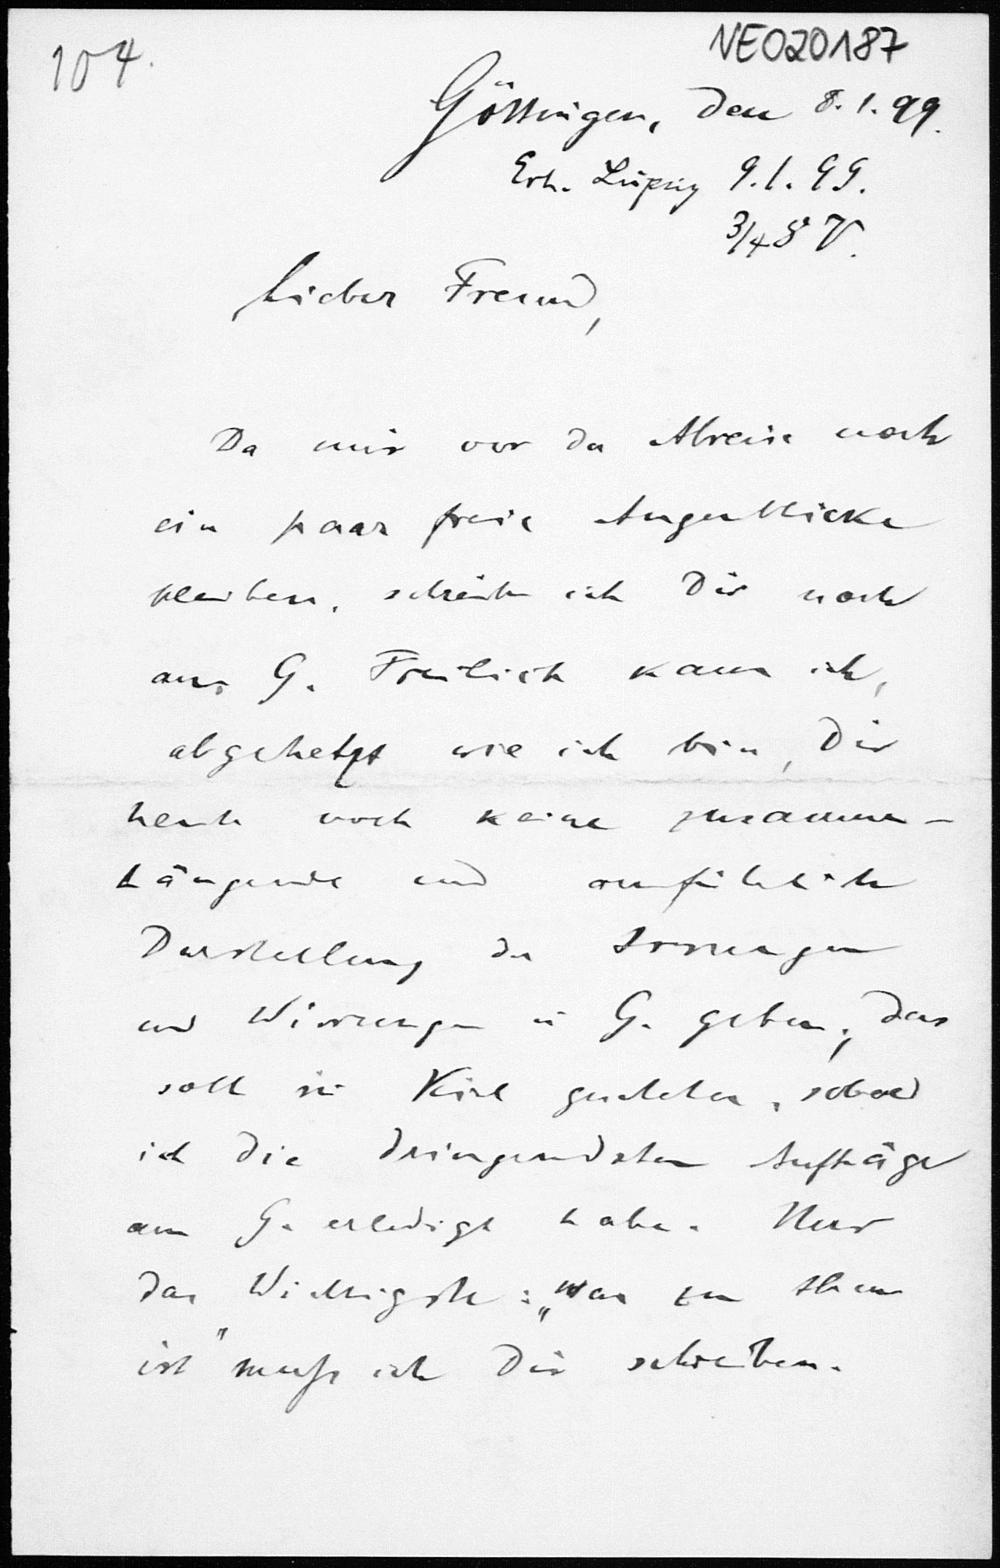 104.
NE020187
Göttingen, den 8.1.99.
Erh. Leipzig 9.1.99.
3/4 8 V.
Lieber Freund,
Da mir vor der Abreise noch
ein paar freie Augenblicke
bleiben, schreibe ich Dir noch
aus G. Freilich kann ich,
abgehetzt wie ich bin, Dir
heute noch keine zusammen-
hängende und ausführliche
Darstellung der Irrungen
und Wirrungen in G. geben; das
soll in Kiel geschehen, sobald
ich die dringendsten Aufträge
aus G. erledigt habe. Nur
das Wichtigste: „was zu thun
ist" muß ich Dir schreiben.